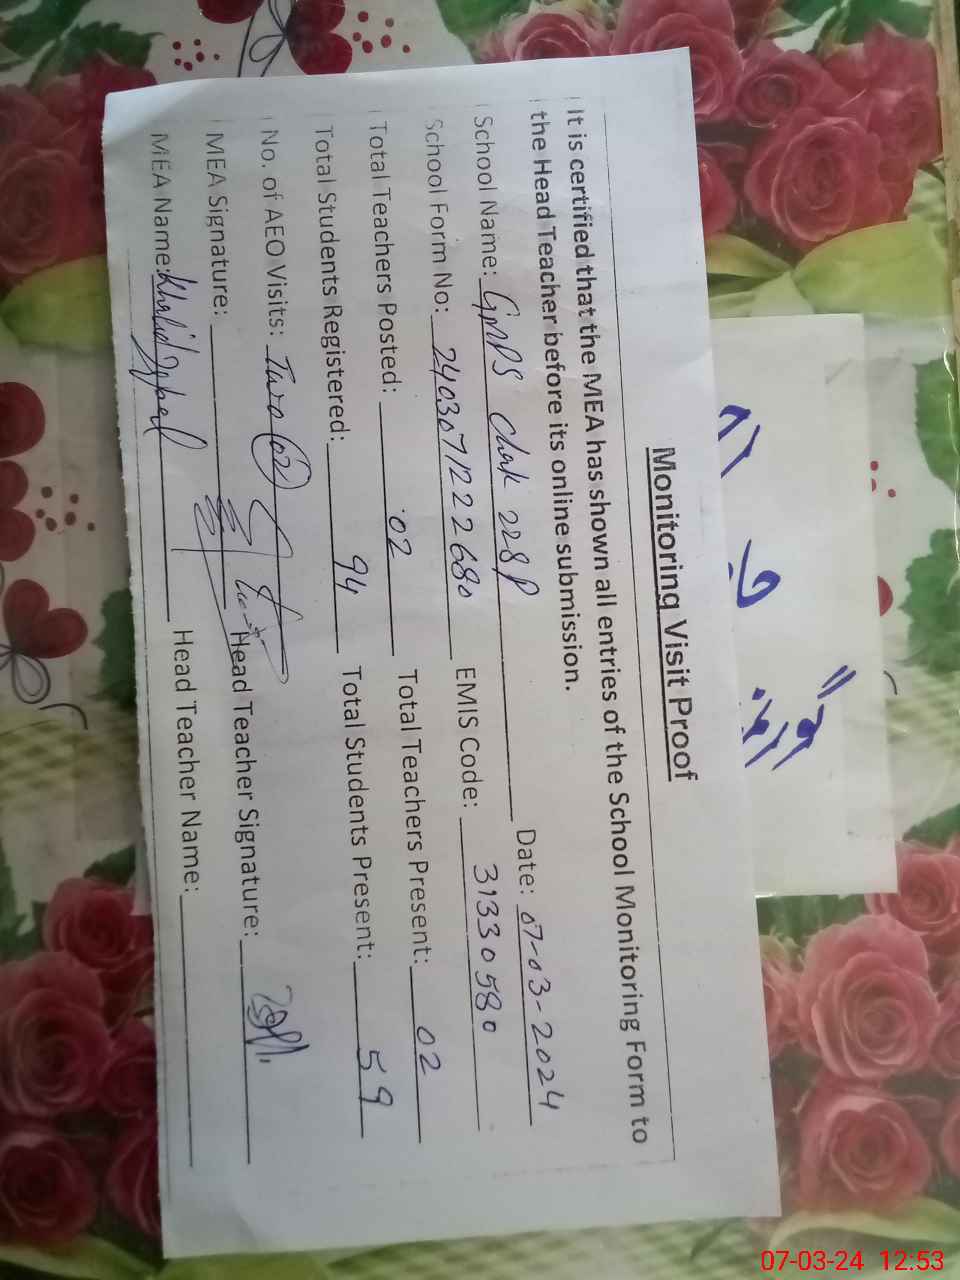 Monitoring Visit Proof
It is certified that the MEA has shown all entries of the School Monitoring Form to
the Head Teacher before its online submission.
School Name: GMPS Chak 228P Date: 07-03-2024
School Form No: 2403071222680 EMIS Code: 31330580
Total Teachers Posted: 02 Total Teachers Present: 02
Total Students Registered: 94 Total Students Present: 59
No. of AEO Visits: Two (02)
MEA Signature: Head Teacher Signature:
MEA Name: Khalid Head Teacher Name:
07-03-24 12:53